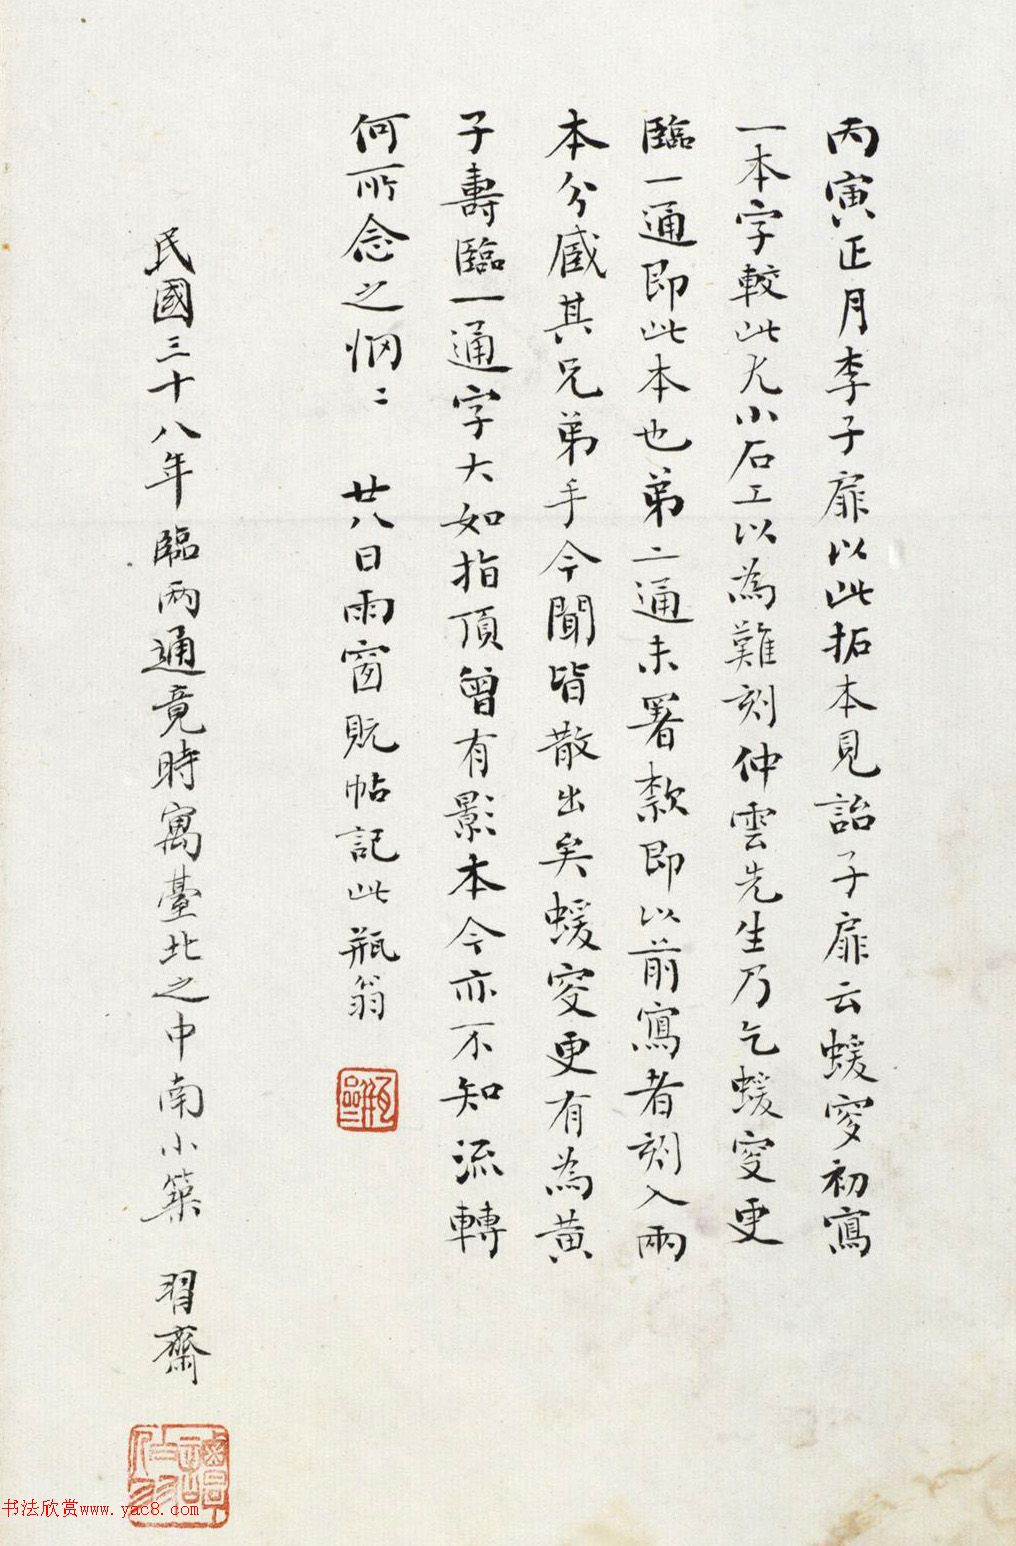 丙寅正月李子扉以此拓本見詒子扉云蝯叟初寫
一本字較此尤小石工以為難刻仲雲先生乃乞蝯叟更
臨一通即此本也弟二通未署款即以前寫者刻入兩
本分臧其兄弟手今聞皆散出矣蝯叟更有為黃
子壽臨一通字大如指頂曾有影本今亦不知流轉
何所念之惘〻 廿八日雨窗翫帖記此瓶翁
民國三十八年臨兩通竟時寓臺北之中南小築 習齋
书法欣赏www.yac8.com